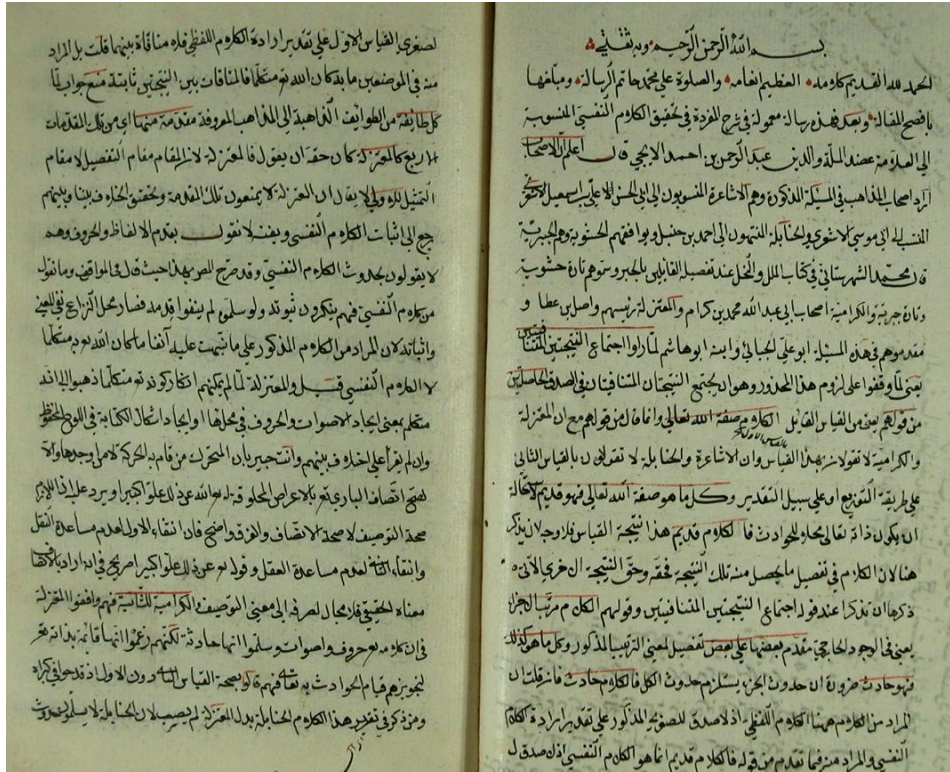 بسم الله الرحمن الرحيم وبه ثقتي
الحمد لله القديم كلامه العظيم انعامه والصلوة على محمد خاتم الرسالة ومبلغها
بافصح المقالة وبعد فهذه رسالة معمولة في شرح المفردة في تحقيق الكلام النفسي المنسوبة
الى العلامة عضد الملة والدين عبد الرحمن بن احمد الايجي قال اعلم ان الاصحاب
اراد اصحاب المذاهب في المسئلة المذكورة وهم الاشاعرة المنسوبون الى ابي الحسن علي بن اسمعيل الاشعري
المنتسب الى ابي موسى الاشعري والحنابلة المنتمون الى احمد بن حنبل ويوافقهم الحشوية وهم الجبرية
قال محمد الشهرستاني في كتاب الملل والنحل عند تفصيل القائلين بالجبر وسموهم تارة حشوية
وتارة جبرية والكرامية اصحاب ابي عبد الله محمد بن كرام والمعتزلة رئيسهم واصل بن عطا و
مقدموهم في هذه المسئلة ابو علي الجبائي وابنه ابو هاشم لما راوا اجتماع النتيجتين المتنافيتين
يعني لما وقفوا على لزوم هذا المحذور وهو ان يجتمع النتيجتان المتنافيتان في الصدق الحاصلين
من قولهم يعني من القياس القايل الكلام صفة الله تعالى وانما قال من قولهم مع ان المعتزلة
والكرامية لا تقولان بهذا القياس وان الاشاعرة والحنابلة لا تقولان بالقياس الثاني
على طريقة التوزيع او على سبيل التقدير وكل ما هو صفة الله تعالى فهو قديم لاستحالة
ان يكون ذاته تعالى محلا للحوادث فالكلام قديم هذا نتيجة القياس فلا وجه لان يذكر
هنا لان الكلام في تفصيل ما يحصل منه تلك النتيجة فحقه وحق النتيجة الاخرى الآتي
ذكرها ان يذكرا عند قوله اجتماع النتيجتين المتنافيتين وقولهم الكلام مرتب الاجزاء
يعني في الوجود الخارجي متقدم بعضها على بعض تفصيل لمعنى الترتيب المذكور وكل ما هو كذلك
فهو حادث ضرورة ان حدوث الجزء يستلزم حدوث الكل فالكلام حادث فان قلت ان
المراد من الكلام ههنا الكلام اللفظي اذ لا صدق للصغرى المذكور على تقدير ارادة الكلام
النفسي والمراد منه فيما تقدم من قوله فالكلام قديم انما هو الكلام النفسي اذ لا صدق ل
لصغرى القياس الاول على تقدير ارادة الكلام اللفظي فلا منافاة بينهما قلت بل المراد
منه في الموضعين ما به كان الله تعالى متكلما فالمنافات بين النتيجتين ثابتة منع جواب لما
كل طائفة من الطوائف الذاهبة الى المذاهب المعروفة مقدمة منها اي من تلك المقدمات
الاربع كالمعتزلة كان حقه ان يقول فالمعتزلة لان المقام مقام التفصيل لا مقام
التمثيل للاولى لا يقال ان المعتزلة لا يمنعون تلك المقدمة وتحقيق الخلاف بيننا وبينهم
يرجع الى اثبات الكلام النفسي ونفيه لا نقول بقدم الالفاظ والحروف وهم
لا يقولون بحدوث الكلام النفسي وقد صرح المص بهذا حيث قال في المواقف وما نقول
من كلام النفسي فهم ينكرون ثبوته ولو سلموه لم ينفوا قدمه فصار محل النزاع نفي المعنى
واثباته لان المراد من الكلام المذكور على ما نبهت عليه آنفا ما كان الله تعالى به متكلما
لا الكلام النفسي قيل والمعتزلة لما لم يمكنهم انكار كونه تعالى متكلما ذهبوا الى انه
متكلم بمعنى ايجاد الاصوات والحروف في محلها او ايجاد اشكال الكتابة في اللوح المحفوظ
وان لم يقرأ على اختلاف بينهم وانت خبير بان المتحرك من قام به الحركة لا من اوجدها والا
لصح اتصاف الباري تعالى بالاعراض المخلوقة له تعالى الله عن ذلك علوا كبيرا ويرد عليه ان اللازم
صحة التوصيف لا صحة الاتصاف والفرق واضح فان انتفاء الاول لعدم مساعدة النقل
وانتفاء الثاني لعدم مساعدة العقل وقوله تعالى عن ذلك علوا كبيرا صريح في انه اراد بالاتصاف
معناه الحقيقي فلا مجال لصرفه الى معنى التوصيف والكرامية للثانية فهم وافقوا المعتزلة
في ان كلامه تعالى حروف واصوات وسلموا انها حادثة لكنهم زعموا انها قائمة بذاته تعالى
لتجويزهم قيام الحوادث به تعالى فهم قالوا بصحة القياس الثاني دون الاول اذ قدحوا في كبراه
ومن ذكر في تقرير هذا الكلام الحنابلة بدل المعتزلة لم يصب لان الحنابلة لا يسلمون حدوث